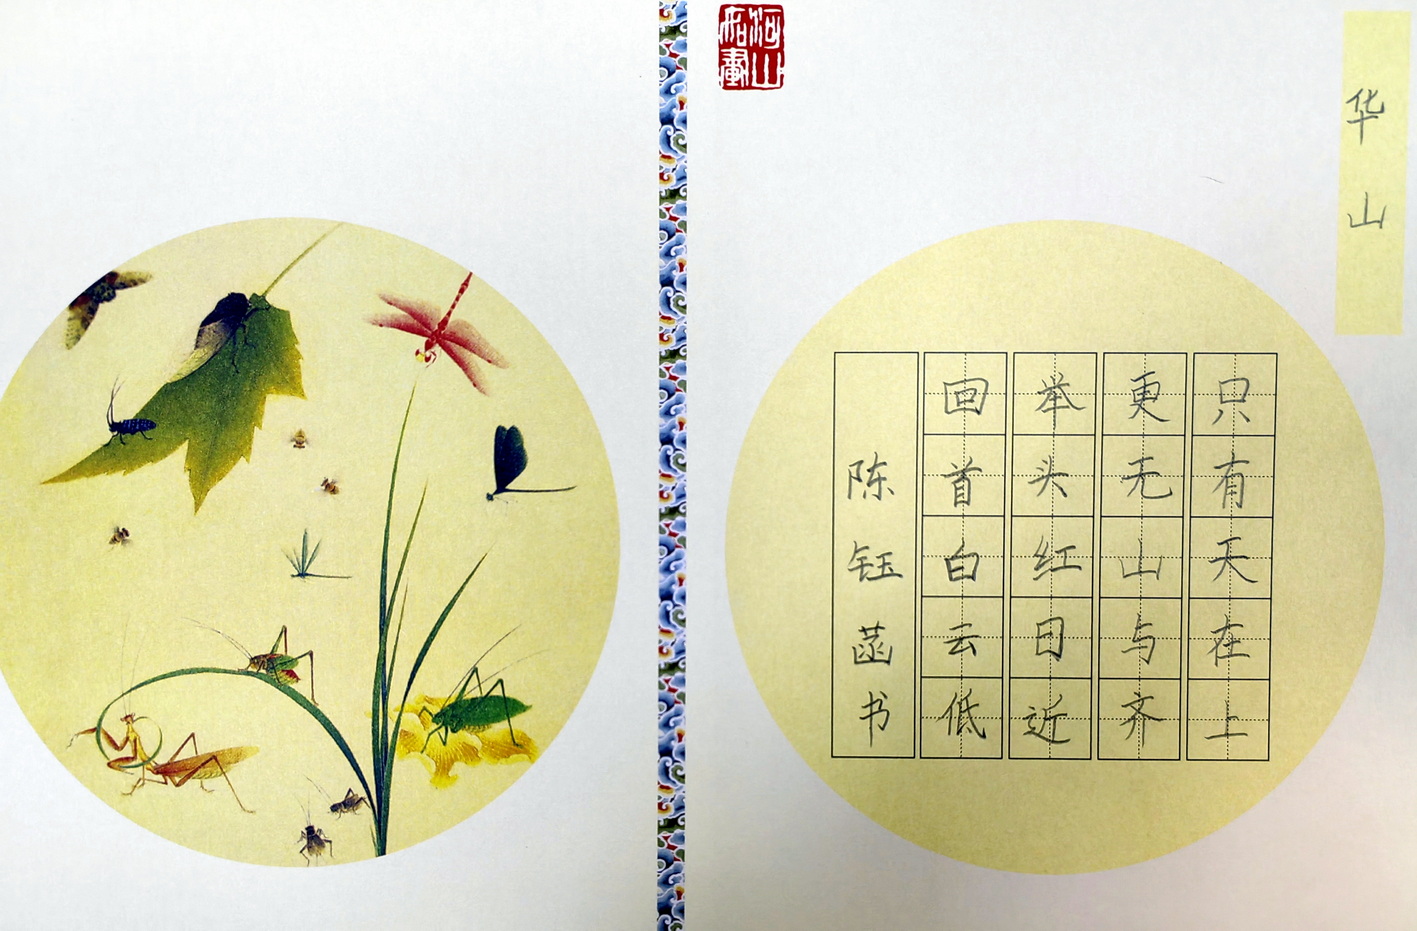 华山
只有天在上
更无山与齐
举头红日近
回首白云低
陈钰菡书